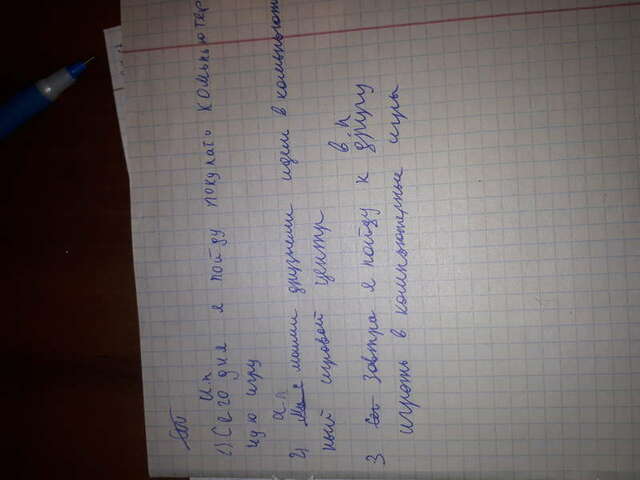 и.п
1) Сегодня я пойду покупать компьютер
ную игру
2) друзьями идем в компьютер
ный игровой центр
в.п
3 завтра я пойду к другу
играть в компьютерные игры